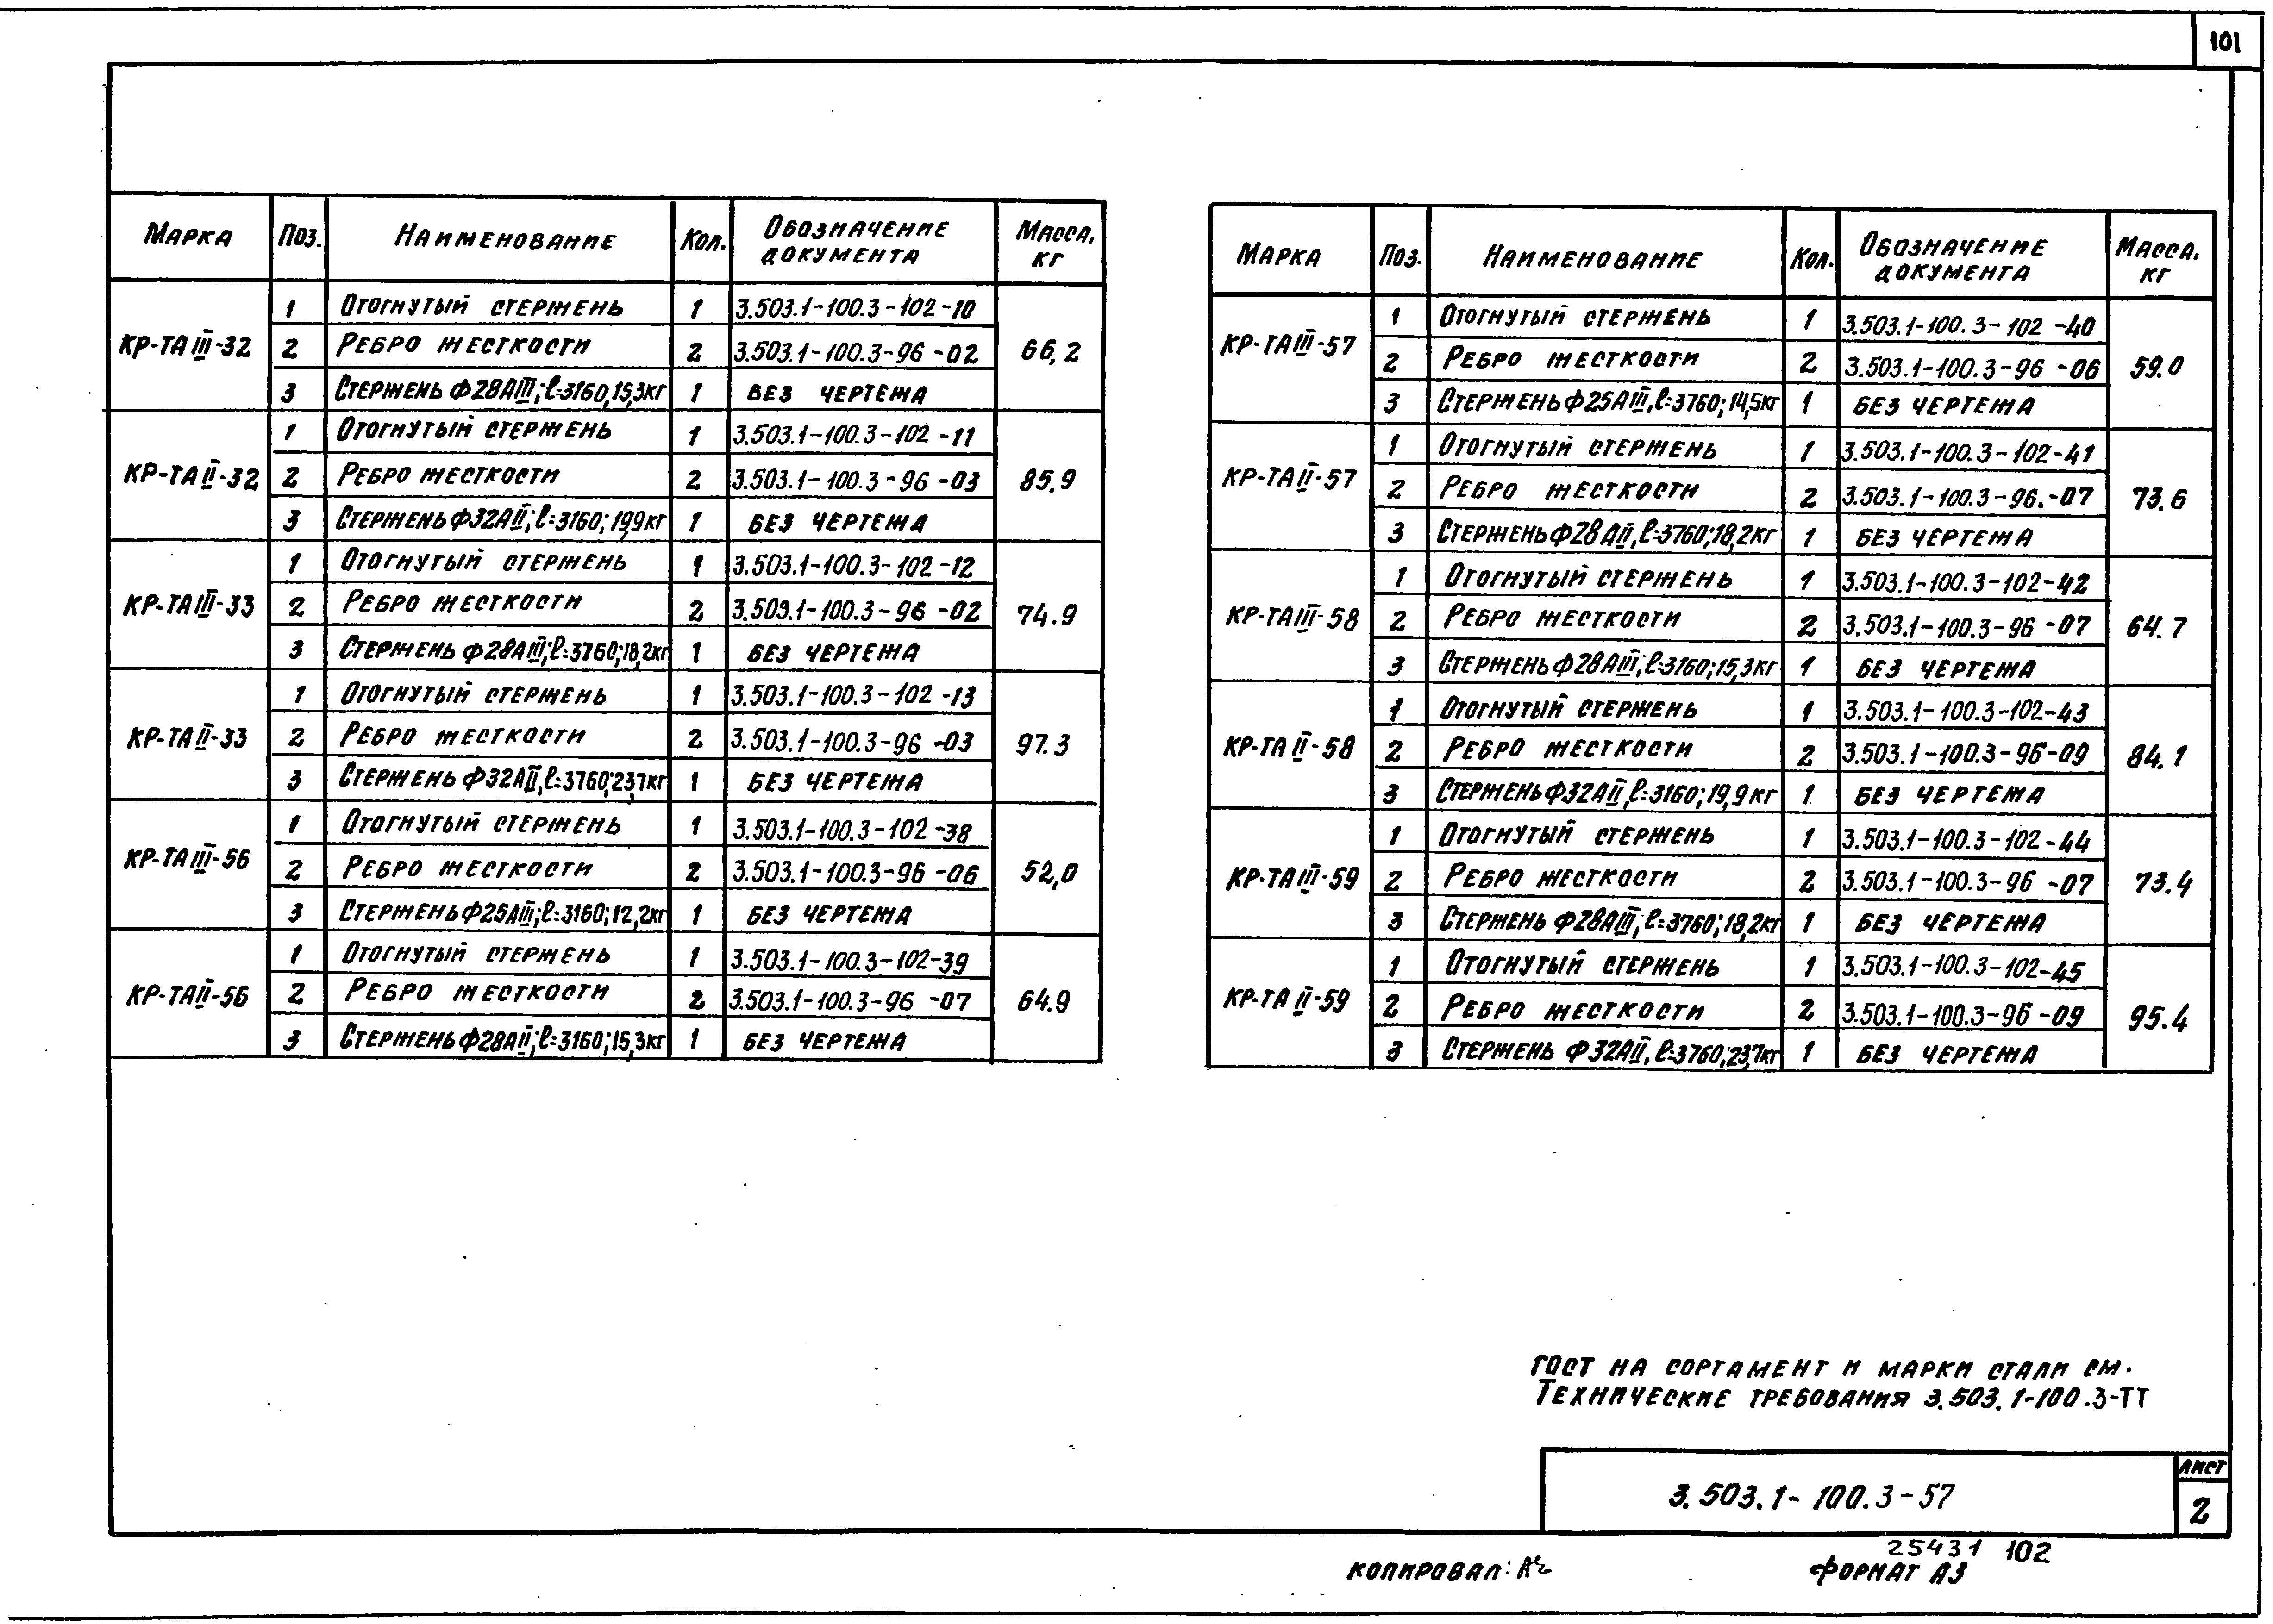 101
Марка Поз. Наименование Кол. Обозначение документа Масса, кг
КР-ТАIII-32 66,2
1 Отогнутый стержень 1 3.503.1-100.3-102-10
2 Ребро жесткости 2 3.503.1-100.3-96-02
3 Стержень Ф28АIII; ℓ=3160, 15,3кг 1 без чертежа
КР-ТАII-32 85.9
1 Отогнутый стержень 1 3.503.1-100.3-102-11
2 Ребро жесткости 2 3.503.1-100.3-96-03
3 Стержень Ф32АII; ℓ=3160; 19,9кг 1 без чертежа
КР-ТАIII-33 74.9
1 Отогнутый стержень 1 3.503.1-100.3-102-12
2 Ребро жесткости 2 3.503.1-100.3-96-02
3 Стержень Ф28АIII; ℓ=3760; 18,2кг 1 без чертежа
КР-ТАII-33 97.3
1 Отогнутый стержень 1 3.503.1-100.3-102-13
2 Ребро жесткости 2 3.503.1-100.3-96-03
3 Стержень Ф32АII, ℓ=3760; 23,7кг 1 без чертежа
КР-ТАIII-56 52,0
1 Отогнутый стержень 1 3.503.1-100.3-102-38
2 Ребро жесткости 2 3.503.1-100.3-96-06
3 Стержень Ф25АIII; ℓ=3160; 12,2кг 1 без чертежа
КР-ТАII-56 64.9
1 Отогнутый стержень 1 3.503.1-100.3-102-39
2 Ребро жесткости 2 3.503.1-100.3-96-07
3 Стержень Ф28АII; ℓ=3160; 15,3кг 1 без чертежа
Марка Поз. Наименование Кол. Обозначение документа Масса, кг
КР-ТАIII-57 59.0
1 Отогнутый стержень 1 3.503.1-100.3-102-40
2 Ребро жесткости 2 3.503.1-100.3-96-06
3 Стержень Ф25АIII, ℓ=3760; 14,5кг 1 без чертежа
КР-ТАII-57 73.6
1 Отогнутый стержень 1 3.503.1-100.3-102-41
2 Ребро жесткости 2 3.503.1-100.3-96.-07
3 Стержень Ф28АII, ℓ=3760; 18,2кг 1 без чертежа
КР-ТАIII-58 64.7
1 Отогнутый стержень 1 3.503.1-100.3-102-42
2 Ребро жесткости 2 3.503.1-100.3-96-07
3 Стержень Ф28АIII; ℓ=3160; 15,3кг 1 без чертежа
КР-ТАII-58 84.1
1 Отогнутый стержень 1 3.503.1-100.3-102-43
2 Ребро жесткости 2 3.503.1-100.3-96-09
3 Стержень Ф32АII, ℓ=3160; 19,9кг 1 без чертежа
КР-ТАIII-59 73.4
1 Отогнутый стержень 1 3.503.1-100.3-102-44
2 Ребро жесткости 2 3.503.1-100.3-96-07
3 Стержень Ф28АIII; ℓ=3760; 18,2кг 1 без чертежа
КР-ТАII-59 95.4
1 Отогнутый стержень 1 3.503.1-100.3-102-45
2 Ребро жесткости 2 3.503.1-100.3-96-09
3 Стержень Ф32АII, ℓ=3760; 23,7кг 1 без чертежа
ГОСТ на сортамент и марки стали см.
Технические требования 3.503.1-100.3-ТТ
3.503.1-100.3-57
Лист
2
25431 102
Копировал:
Формат А3